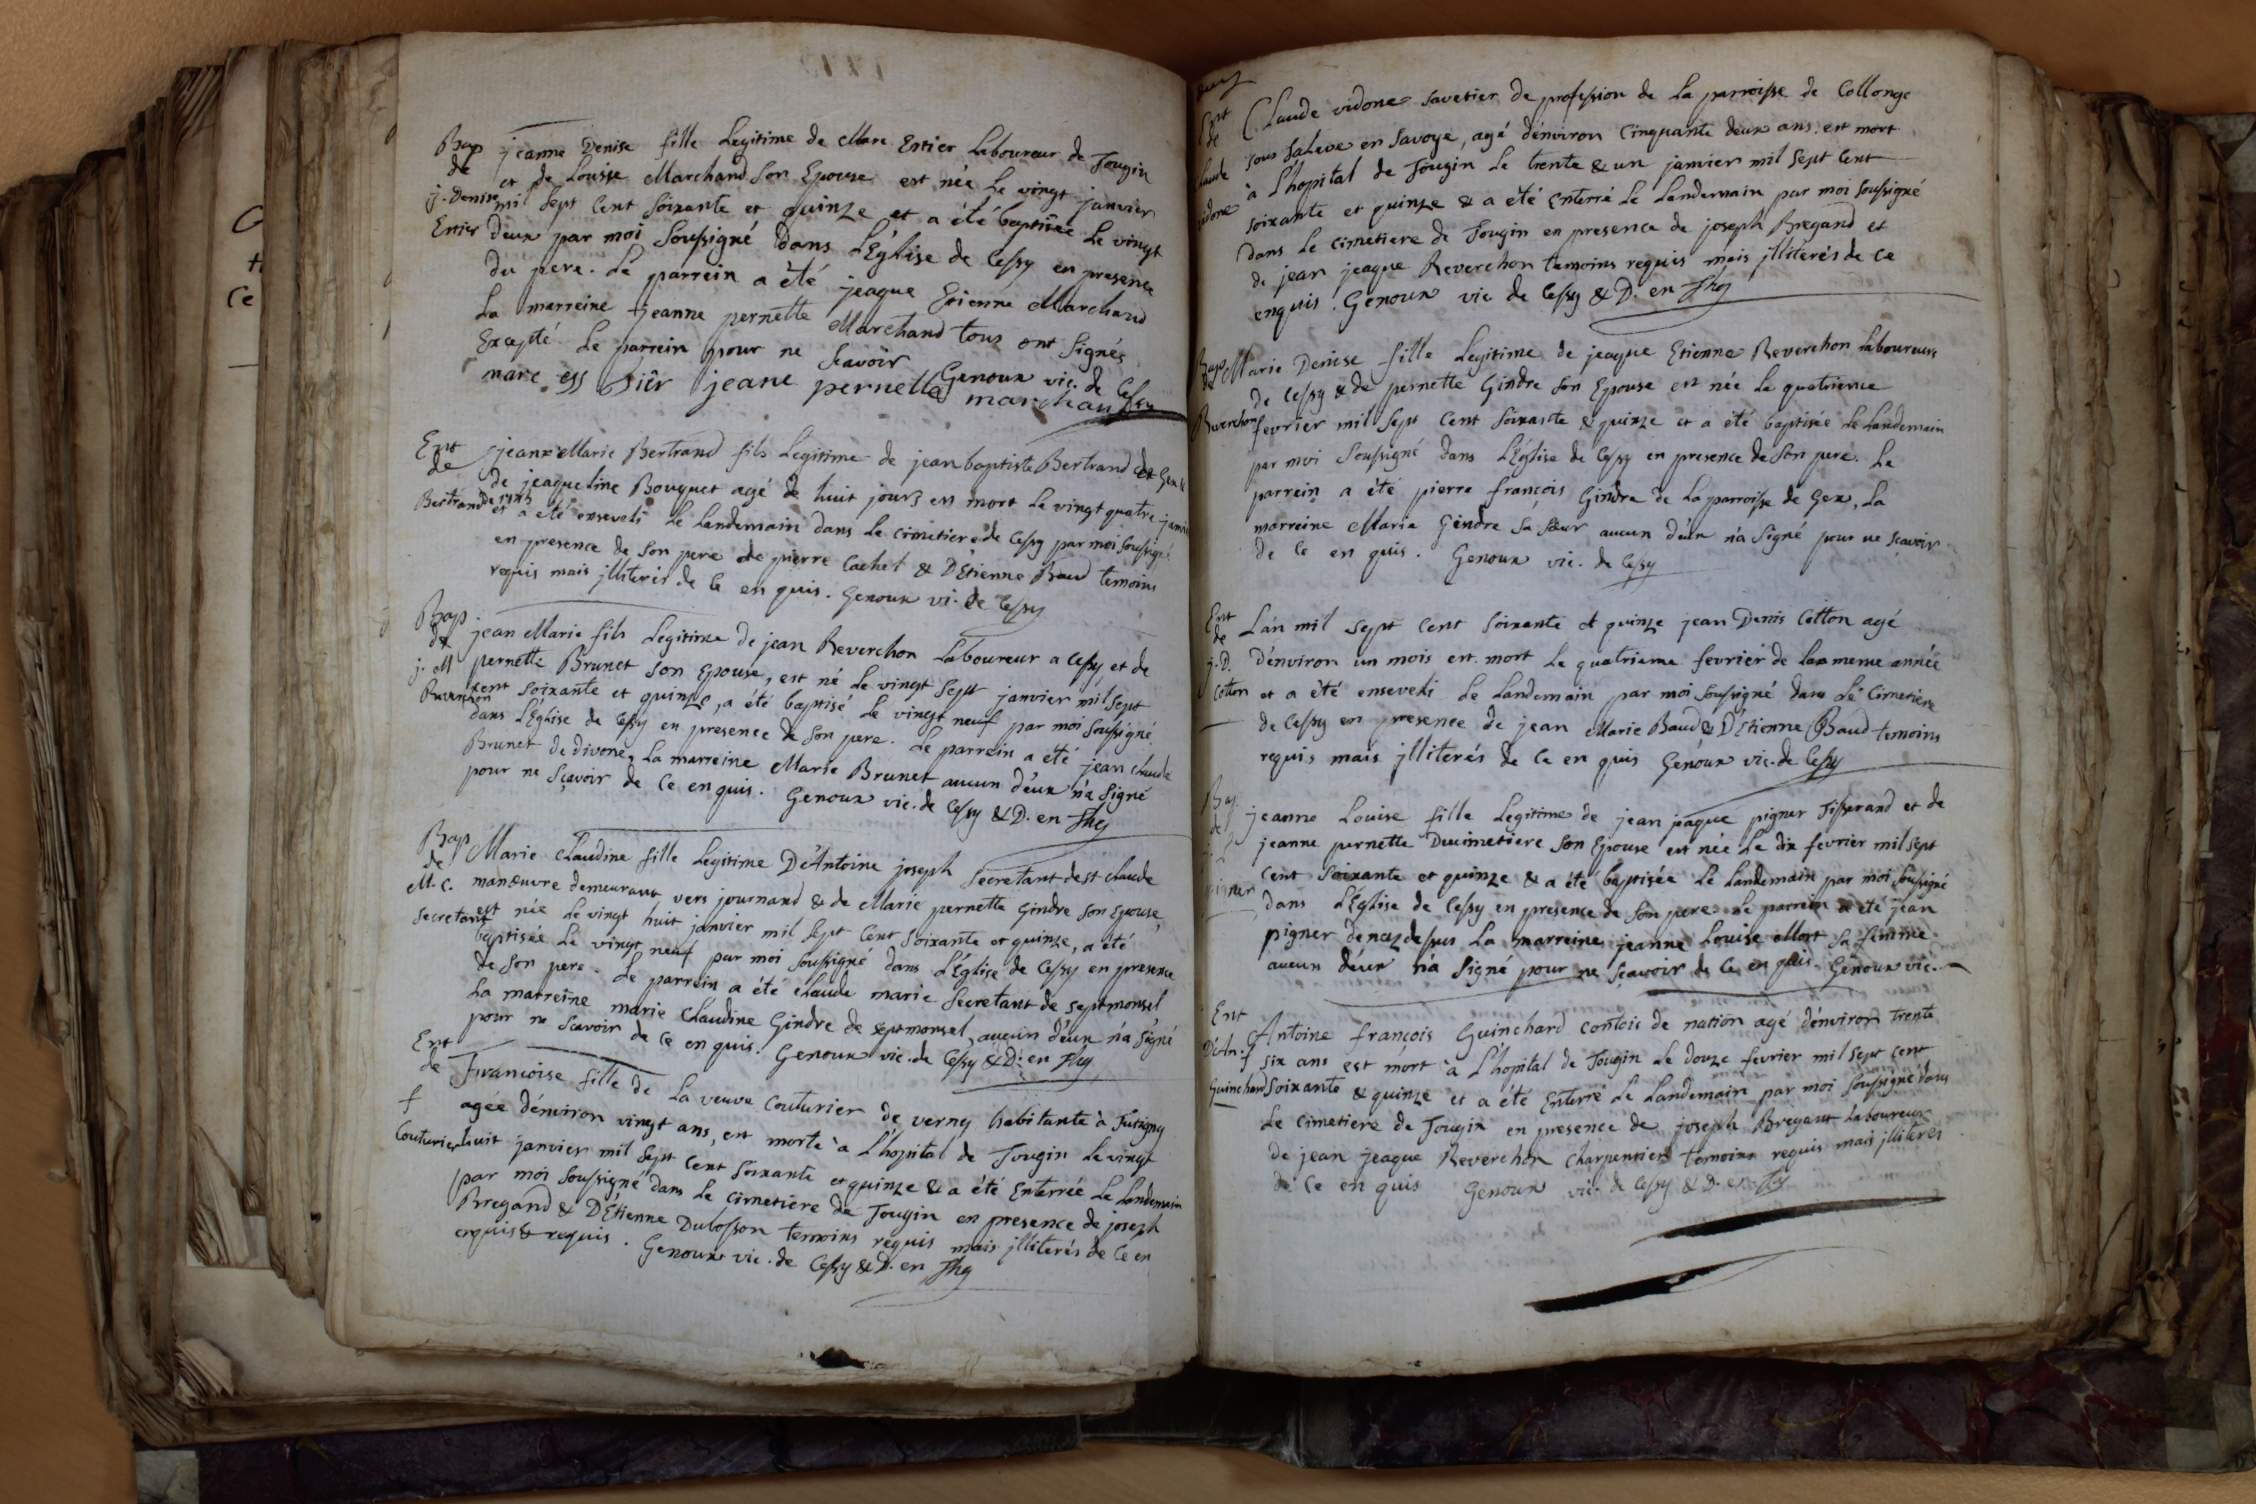 Bap
de
j. Denise
Enier
jeanne Denise fille Legitime de Marc Enier Laboureur de Tougin
et de Louise Marchand Son Epouse est née Le vingt janvier
mil Sept Cent Soixante et quinze et a été baptisée Le vingt
deux par moi Soussigné dans L'Église de Cessy en presence
du pere. Le parrein a été jeaque Etienne Marchand
La marreine jeanne pernette Marchand tous ont Signés
Excepté Le parrein pour ne Scavoir Genoux vic. de Cessy
marc jeane pernette marchan
Ent
de
Bertrand
jean Marie Bertrand fils Legitime de jean baptiste Bertrand
de jeaqueline Bouquet agé de huit jours est mort Le vingt quatre janvier
et a été enseveli Le Landemain dans Le cimetiere de Cessy par moi Soussigné
en presence de Son pere de pierre Cachet & D'Etienne Baud temoins
requis mais jlliterés de Ce en quis. Genoux vi. de Cessy
Bap
de
j. M
Reverchon
jean Marie fils Legitime de jean Reverchon Laboureur a Cessy et de
pernette Brunet Son Epouse, est né Le vingt Sept janvier mil Sept
Cent Soixante et quinze, a été baptisé Le vingt neuf par moi Soussigné
dans L'Église de Cessy en presence de Son pere. Le parrein a été jean Claude
Brunet de divone, La marreine Marie Brunet aucun d'eux n'a Signé
pour ne Sçavoir de Ce en quis. Genoux vic. de Cessy & D. en Thg
Bap
de
M. C.
Secretant
Marie Claudine fille Legitime D'Antoine joseph Secretant de st Claude
manœuvre demeurant vers journand & de Marie pernette Gindre Son Epouse,
est née Le vingt huit janvier mil Sept Cent Soixante et quinze, a été
baptisée Le vingt neuf par moi Soussigné dans L'Église de Cessy en presence
de Son pere. Le parrein a été Claude marie Secretant de Septmonsel
La marreine marie Claudine Gindre de Septmonsel, aucun d'eux n'a Signé
pour ne Scavoir de Ce en quis. Genoux vic. de Cessy & D. en Thg
Ent
de
f
Couturier
Francoise fille de La veuve Couturier de verny habitante à
agée d'environ vingt ans, est morte à L'hopital de Tougin Le vingt
huit janvier mil Sept Cent Soixante et quinze & a été Enterrée Le Landemain
par moi Soussigné dans Le Cimetiere de Tougin en presence de joseph
Bregand & D'Etienne Dubosson temoins requis mais jlliterés de Ce en
enquis & requis. Genoux vic. de Cessy & D. en Thg
Ent
de
Claude
vidone
Claude vidone Savetier de profession de La parroisse de Collonge
Sous Saleve en Savoye, agé d'environ Cinquante deux ans, est mort
à L'hopital de Tougin Le trente & un janvier mil Sept Cent
Soixante et quinze & a été Enterré Le Landemain par moi Soussigné
dans Le Cimetiere de Tougin en presence de joseph Bregand et
de jean jeaque Reverchon temoins requis mais jlliterés de Ce
enquis. Genoux vic de Cessy & D. en Thg
Bap
de
Reverchon
Marie Denise fille Legitime de jeaque Etienne Reverchon Laboureur
de Cessy & de pernette Gindre Son Epouse est née Le quatrieme
fevrier mil Sept Cent Soixante & quinze et a été baptisée Le Landemain
par moi Soussigné dans L'Église de Cessy en presence de Son pere. Le
parrein a été pierre françois Gindre de La parroisse de Gex, La
marreine Marie Gindre Sa Sœur aucun d'eux n'a Signé pour ne Sçavoir
de Ce en quis. Genoux vic. de Cessy
Ent
de
j. D.
Cotton
L'an mil Sept Cent Soixante et quinze jean Denis Cotton agé
d'environ un mois est mort Le quatrieme fevrier de La meme année
et a été enseveli Le Landemain par moi Soussigné dans Le Cimetiere
de Cessy en presence de jean Marie Baud & D'Etienne Baud temoins
requis mais jlliterés de Ce en quis Genoux vic. de Cessy
Bap.
de
pigner
jeanne Louise fille Legitime de jean jaque pigner Tisserand et de
jeanne pernette Ducimetiere Son Epouse est née Le dix fevrier mil Sept
Cent Soixante et quinze & a été baptisée Le Landemain par moi Soussigné
dans L'Église de Cessy en presence de Son pere. Le parrein a été jean
pigner La marreine jeanne Louise Mort Sa femme
aucun d'eux n'a Signé pour ne Sçavoir de Ce en quis Genoux vic.
Ent
D'An. f
Guinchard
Antoine françois Guinchard contois de nation agé d'environ trente
six ans est mort à L'hopital de Tougin Le douze fevrier mil Sept Cent
Soixante & quinze et a été Enterré Le Landemain par moi Soussigné dans
Le Cimetiere de Tougin en presence de joseph Bregant Laboureur
de jean jeaque Reverchon Charpentier temoins requis mais jlliterés
de Ce en quis Genoux vic. de Cessy & D. en Thg